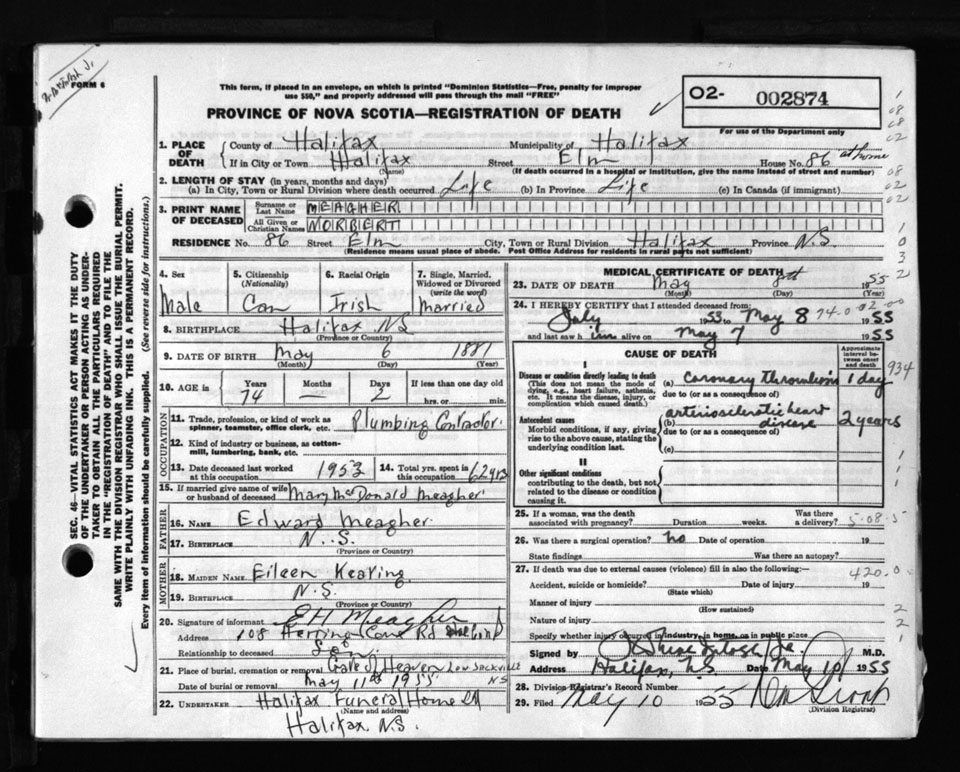 FORM 6
This form, if placed in an envelope, on which is printed "Dominion Statistics—Free, penalty for improper
use $50," and properly addressed will pass through the mail "FREE"
PROVINCE OF NOVA SCOTIA—REGISTRATION OF DEATH
O2- 002874
For use of the Department only
1. PLACE OF DEATH
County of Halifax Municipality of Halifax
If in City or Town Halifax Street Elm House No. 86 at home
(Name) (If death occurred in a hospital or institution, give the name instead of street and number)
2. LENGTH OF STAY (in years, months and days)
(a) In City, Town or Rural Division where death occurred Life (b) In Province Life (c) In Canada (if immigrant)
3. PRINT NAME OF DECEASED
Surname or Last Name MEAGHER
All Given or Christian Names NORBERT
RESIDENCE No. 86 Street Elm City, Town or Rural Division Halifax Province N.S.
(Residence means usual place of abode. Post Office Address for residents in rural parts not sufficient)
4. Sex
Male
5. Citizenship
(Nationality)
Can
6. Racial Origin
Irish
7. Single, Married, Widowed or Divorced
(write the word)
Married
8. BIRTHPLACE Halifax NS
(Province or Country)
9. DATE OF BIRTH May 6 1881
(Month) (Day) (Year)
10. AGE in
Years Months Days If less than one day old
74 — 2 hrs. or min.
OCCUPATION
11. Trade, profession, or kind of work as
spinner, teamster, office clerk, etc. Plumbing Contractor.
12. Kind of industry or business, as cotton-
mill, lumbering, bank, etc.
13. Date deceased last worked
at this occupation 1953
14. Total yrs. spent in
this occupation 62 yrs
15. If married give name of wife
or husband of deceased Mary McDonald Meagher
FATHER
16. NAME Edward Meagher
17. BIRTHPLACE N.S.
(Province or Country)
MOTHER
18. MAIDEN NAME Eileen Keating
19. BIRTHPLACE N.S.
(Province or Country)
20. Signature of informant EH Meagher
Address 108 Herring Cove Rd
Relationship to deceased Son
21. Place of burial, cremation or removal Gate of Heaven Low Sackville NS
Date of burial or removal May 11th 1955
22. UNDERTAKER Halifax Funeral Home
(Name and address)
Halifax N.S.
MEDICAL CERTIFICATE OF DEATH
23. DATE OF DEATH May 8th 1955
(Month) (Day) (Year)
24. I HEREBY CERTIFY that I attended deceased from
July 1953 to May 8 1955
and last saw him alive on May 7 1955
CAUSE OF DEATH
Approximate interval between onset and death
I
Disease or condition directly leading to death
(This does not mean the mode of dying, e.g., heart failure, asthenia, etc. It means the disease, injury, or complication which caused death.)
(a) Coronary thrombosis 1 day
due to (or as a consequence of)
Antecedent causes
Morbid conditions, if any, giving rise to the above cause, stating the underlying condition last.
(b) arteriosclerotic heart disease 2 years
due to (or as a consequence of)
(c)
II
Other significant conditions
contributing to the death, but not related to the disease or condition causing it.
934
25. If a woman, was the death
associated with pregnancy? Duration weeks. Was there a delivery?
5-08-5
26. Was there a surgical operation? no Date of operation 19
State findings Was there an autopsy?
27. If death was due to external causes (violence) fill in also the following:—
420.0
Accident, suicide or homicide? Date of injury 19
(State which)
Manner of injury
(How sustained)
Nature of injury
Specify whether injury occurred in industry, in home, or in public place
Signed by M.D.
Address Halifax, N.S. Date May 10 1955
28. Division Registrar's Record Number
29. Filed May 10 1955
(Division Registrar)
SEC. 46—VITAL STATISTICS ACT MAKES IT THE DUTY
OF THE UNDERTAKER OR PERSON ACTING AS UNDER-
TAKER TO OBTAIN ALL THE PARTICULARS REQUIRED
IN THE "REGISTRATION OF DEATH" AND TO FILE THE
SAME WITH THE DIVISION REGISTRAR WHO SHALL ISSUE THE BURIAL PERMIT.
WRITE PLAINLY WITH UNFADING INK. THIS IS A PERMANENT RECORD.
Every item of information should be carefully supplied. (See reverse side for instructions.)